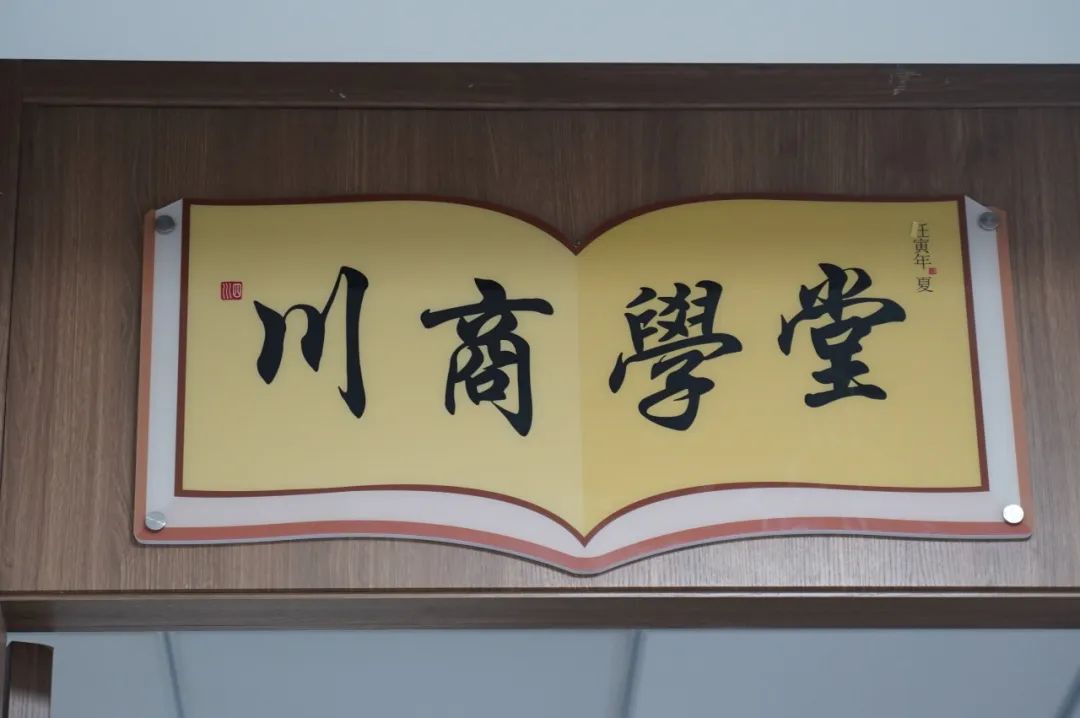 川商學堂
壬寅年
夏
四川